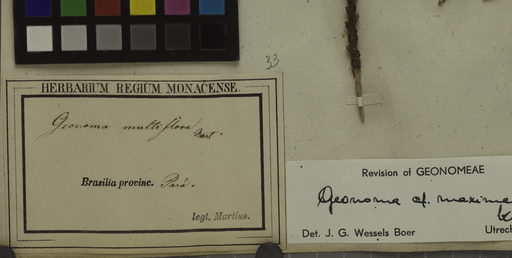 33
HERBARIUM REGIUM MONACENSE.
Geonoma multiflora
Mart.
Brasilia provinc. Pará.
legt. Martius.
Revision of GEONOMEAE
Geonoma cf. maxima
Det. J. G. Wessels Boer
Utrech